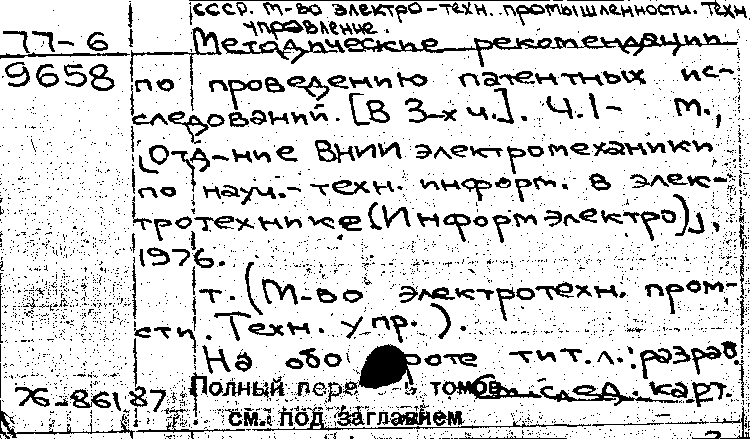 СССР. М-во электро-техн. промышленности. Техн.
управление.
77-6 Методические рекомендации
9658 по проведению патентных ис-
следований. [В 3-х ч.]. Ч. 1- М.,
(Отд-ние ВНИИ электромеханики
по науч.-техн. информ. в элек-
тротехнике (Информэлектро)),
1976.
т. (М-во электротехн. пром-
сти. Техн. упр.).
На обо роте тит. л.: разраб.
76-86187 Полный пере ь томов См. след. карт.
см. под заглавием